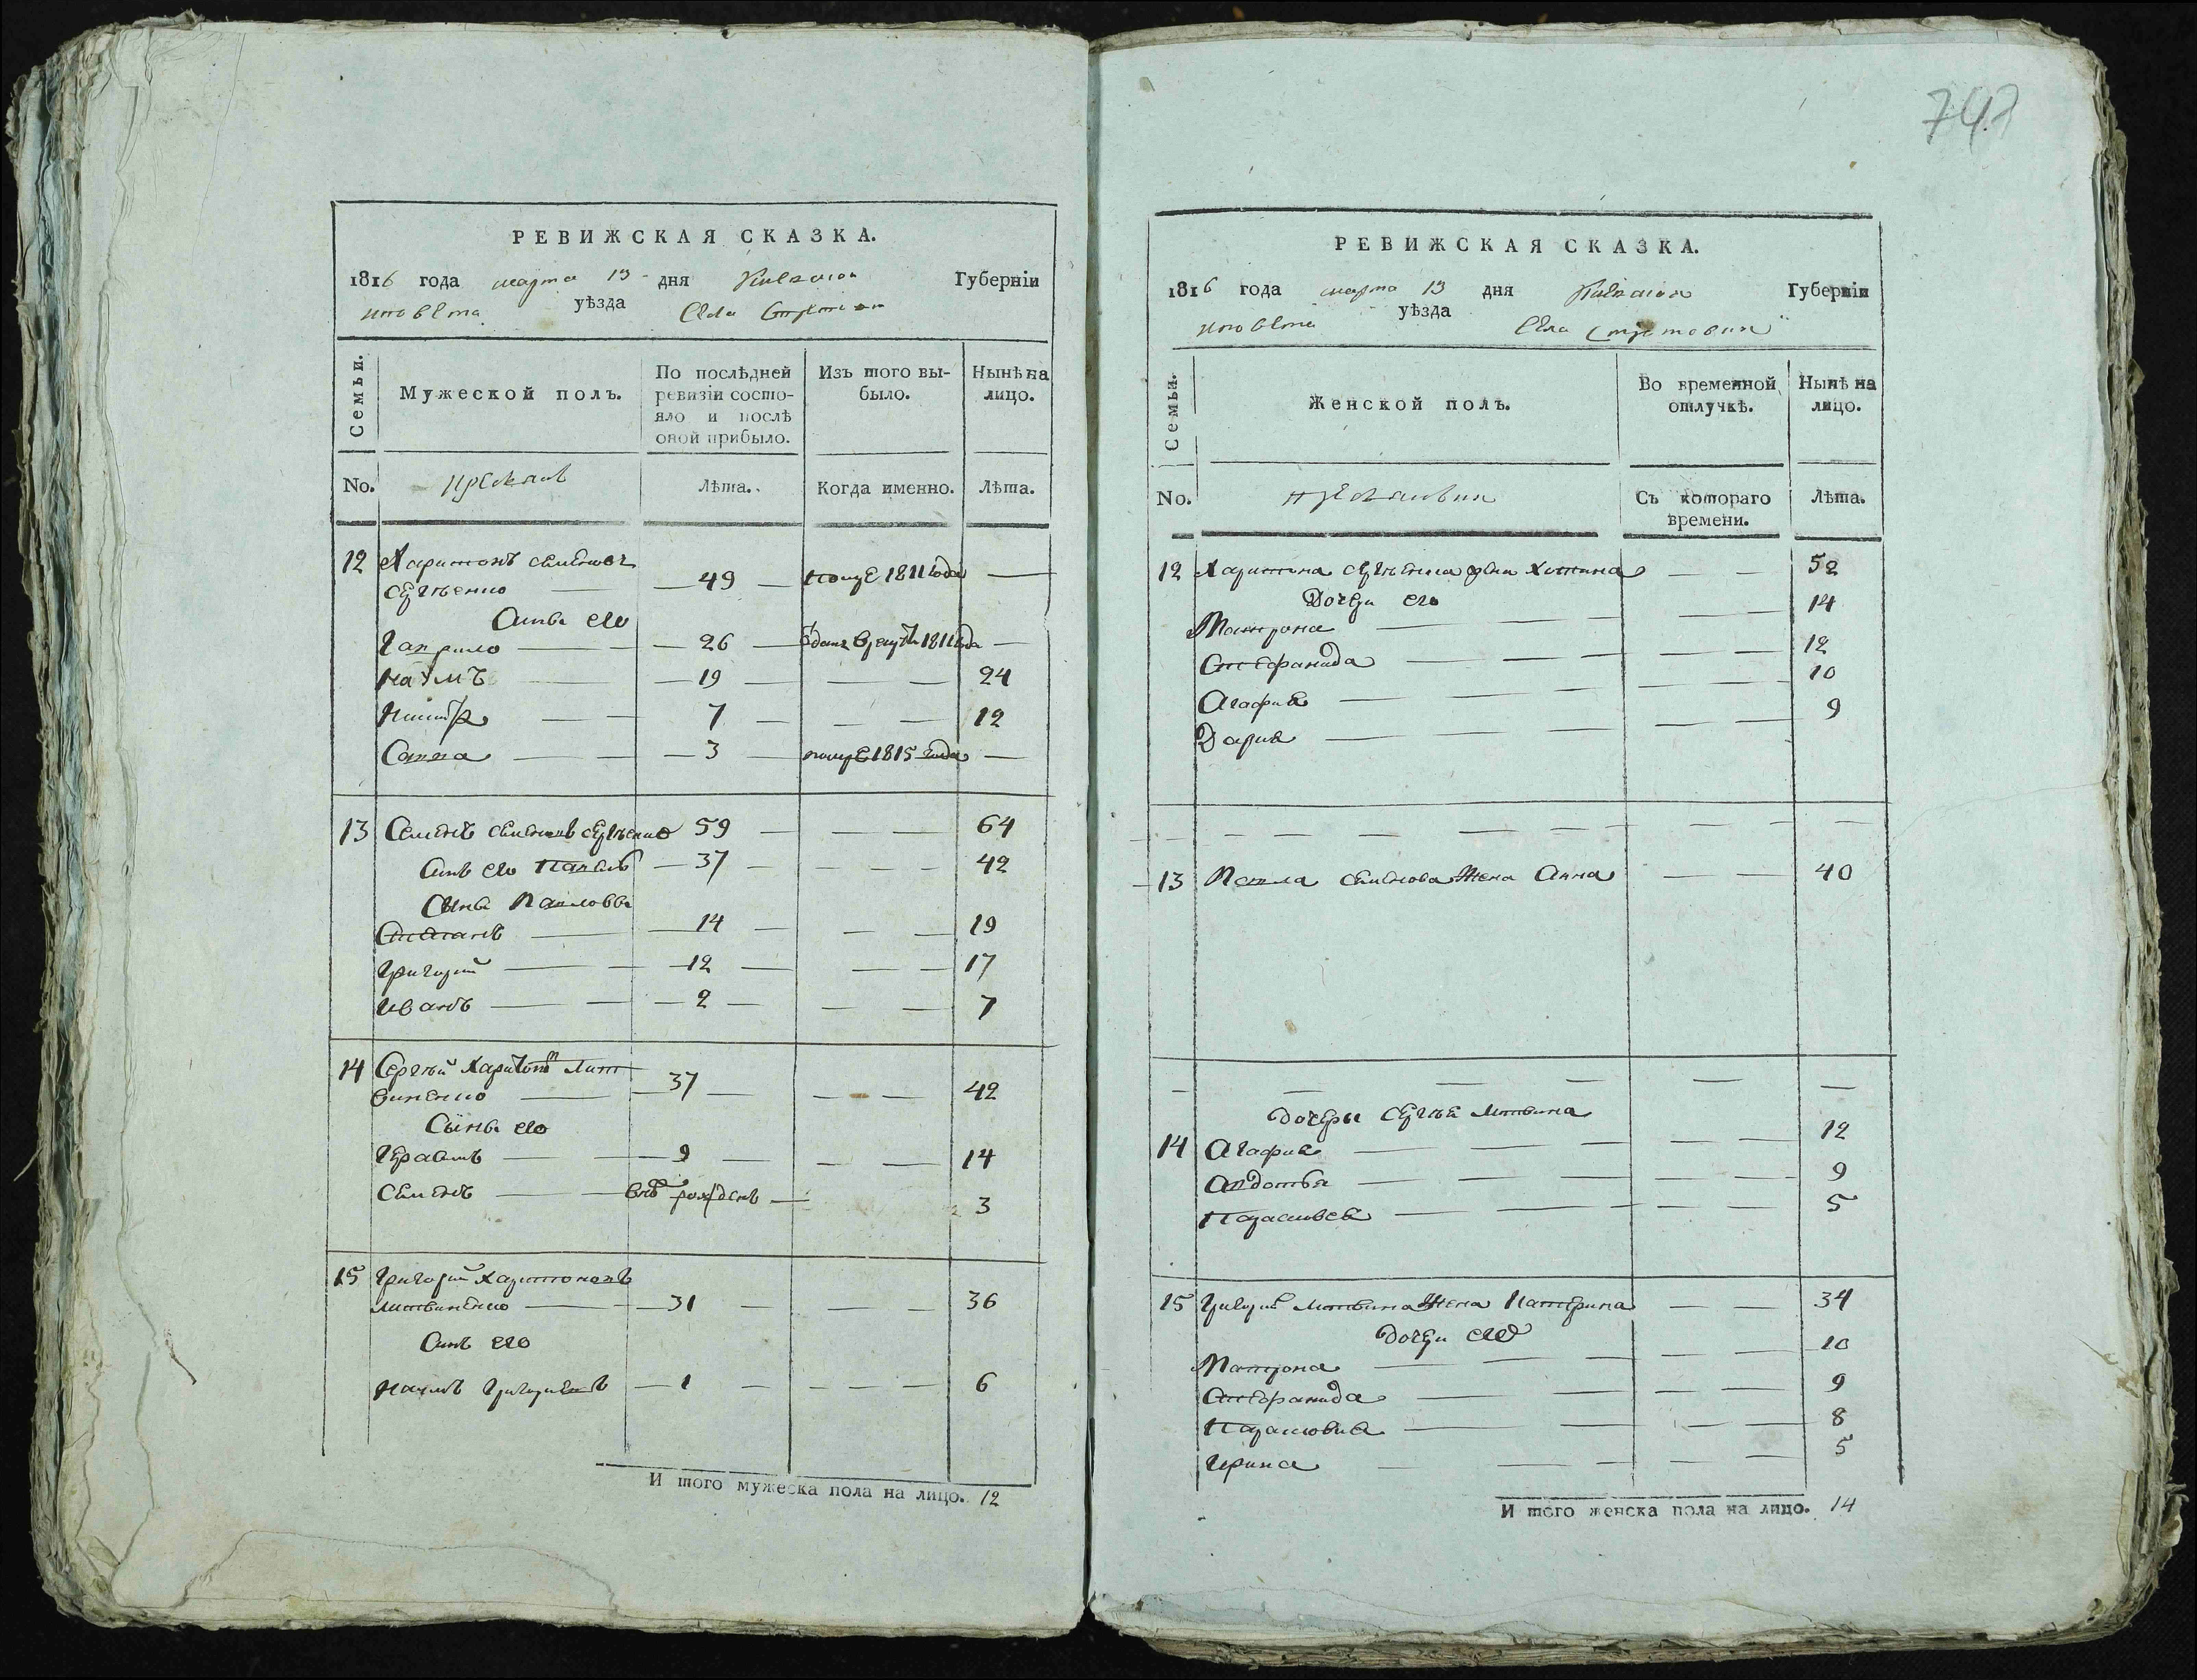 747
РЕВИЖСКАЯ СКАЗКА.
1816 года марта 13 дня Киевской Губерніи
повета уѣзда Села
Семьи.
Мужеской полъ.
По послѣдней ревизіи состояло и послѣ оной прибыло.
Изъ того выбыло.
Нынѣ на лицо.
No.
Лѣта.
Когда именно.
Лѣта.
12 Харитонъ Семеновъ
Сергѣенко — 49 — помре 1811 года —
Сины его
Гаврило — 26 — отданъ в рекруты 1811 года —
Наумъ — 19 — 24
7 — 12
Савва — 3 — помре 1815 года —
13 Семенъ Семеновъ Сергѣенко 59 — 64
Синъ его Павелъ — 37 — 42
Сины Павловы
Степанъ — 14 — 19
Григорий — 12 — 17
Иванъ — 2 — 7
14 Сергѣй Харитоновъ Лит
виненко — 37 — 42
Сины его
9 — 14
Семенъ — вновь рожденъ — 3
15 Григорий Харитоновъ
Литвиненко — 31 — 36
Синъ его
Наумъ Григориевъ — 1 — 6
И того мужеска пола на лицо. 12
РЕВИЖСКАЯ СКАЗКА.
1816 года марта 13 дня Киевской Губерніи
повета уѣзда Села
Семьи.
Женской полъ.
Во временной отлучкѣ.
Нынѣ на лицо.
No.
Съ котораго времени.
Лѣта.
12 Харитона Сергѣенка жена — 52
Дочери его
Матрона — 14
Стефанида — 12
Агафия — 10
Дария — 9
13 Павла Семенова жена Анна — 40
Дочеры Сергѣя Литвина
14 Агафия — 12
Авдотья — 9
Парасковея — 5
15 Григория Литвина жена Катерина — 34
Дочери его
Матрона — 10
Стефанида — 9
Парасковия — 8
Ирина — 5
И того женска пола на лицо. 14